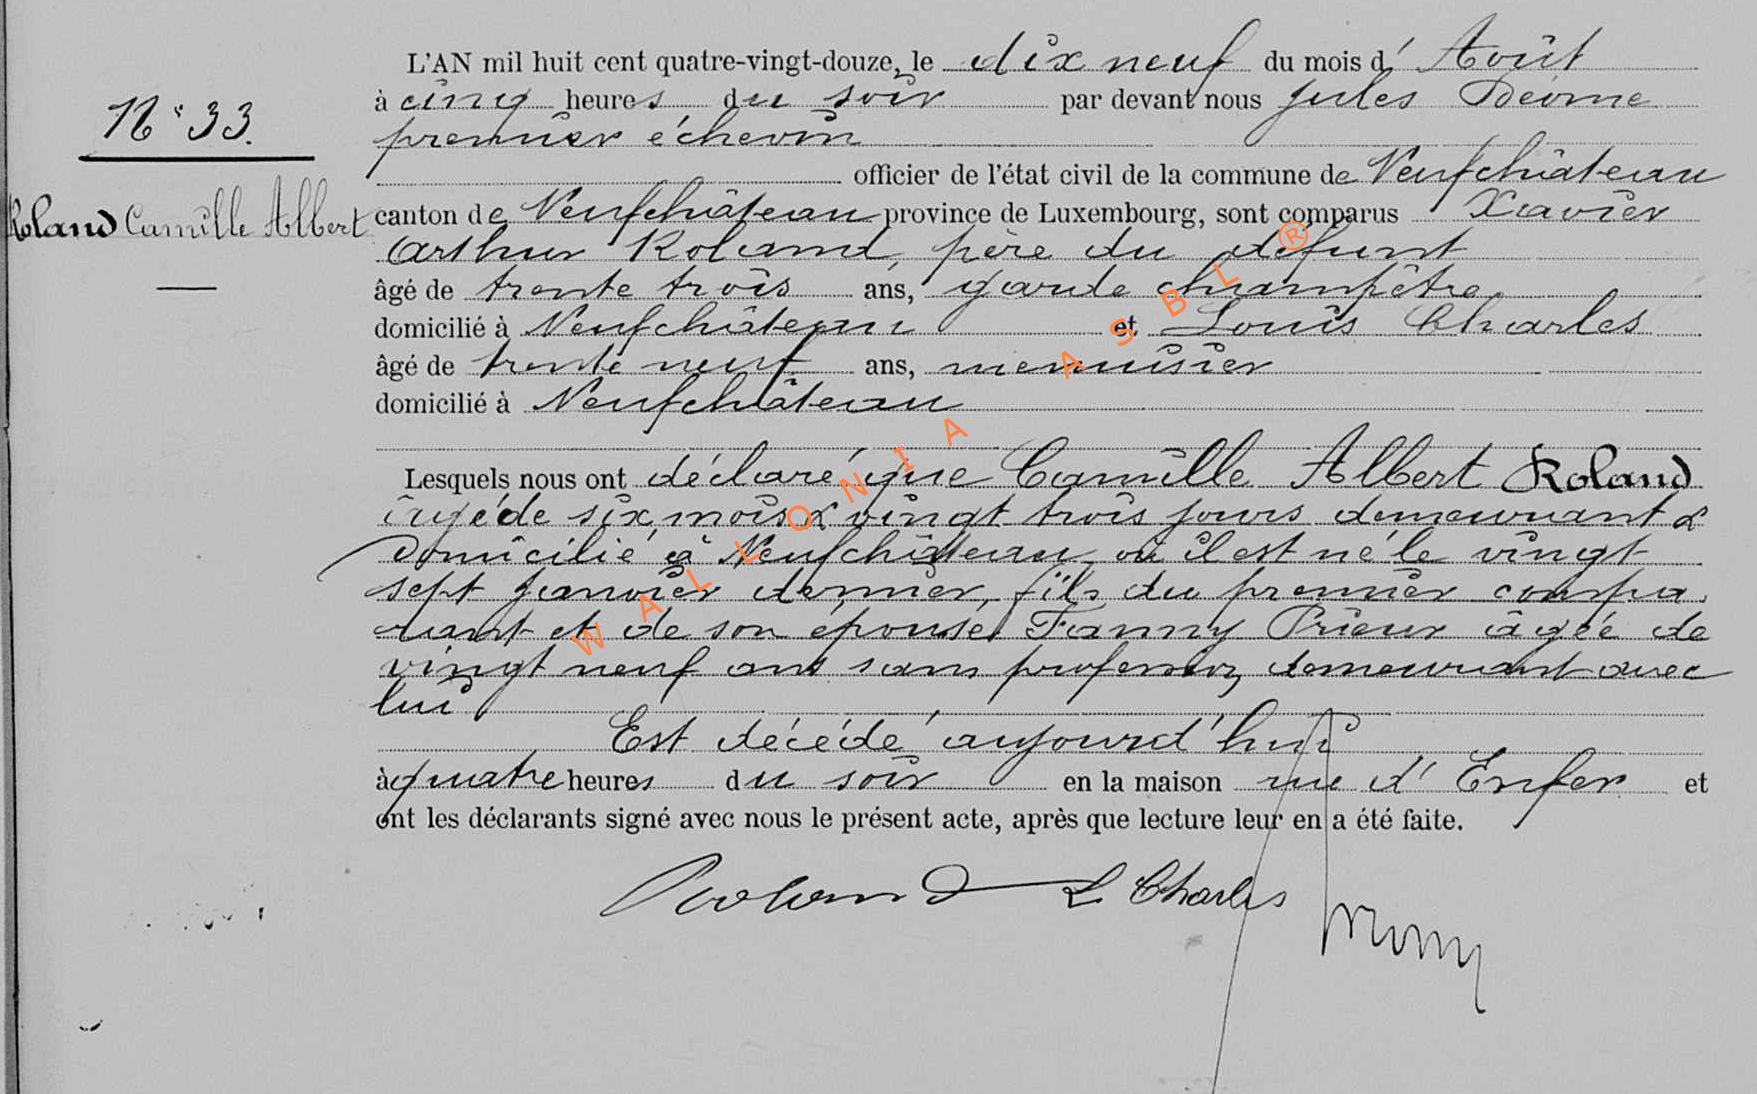 N° 33.
Roland Camille Albert
L'AN mil huit cent quatre-vingt-douze, le dix neuf du mois d' Août
à cinq heures du soir par devant nous Jules
premier échevin
officier de l'état civil de la commune de Neufchâteau
canton de Neufchâteau province de Luxembourg, sont comparus Xavier
Arthur Roland, père du défunt
âgé de trente trois ans, garde champêtre
domicilié à Neufchâteau et Louis Charles
âgé de trente neuf ans, menuisier
domicilié à Neufchâteau
Lesquels nous ont déclaré que Camille Albert Roland
âgé de six mois & vingt trois jours demeurant &
domicilié à Neufchâteau où il est né le vingt
sept Janvier dernier, fils du premier compa
rant et de son épouse Fanny Prieur âgée de
vingt neuf ans sans profession, demeurant avec
lui
Est décédé aujourd'hui
à quatre heures du soir en la maison rue d' Enfer et
ont les déclarants signé avec nous le présent acte, après que lecture leur en a été faite.
Roland L Charles
WALLONIA ASBL ®